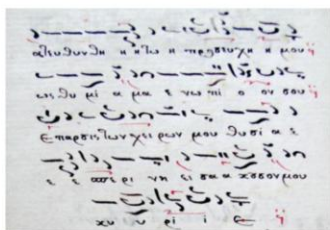 ατευθυνθη η η τω η προσευχη η μου
ως θυ μι α μα ε νω πι ο ον σου
Ε παρσις των χει ρων μου θυ σι α ε
ε ε σπε ρι νη ει σα α κουσον μου
κυ υ υ ρι ι ε